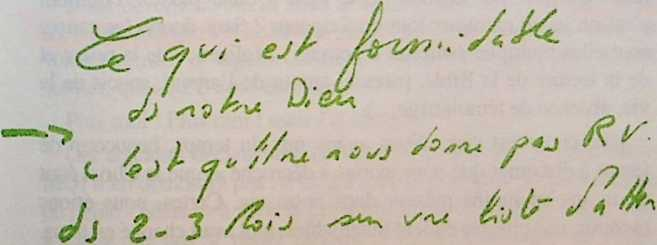 Ce qui est formidable
ds notre Dieu
→ c'est qu'il ne nous donne pas RV.
ds 2-3 Mois sur une liste d'att